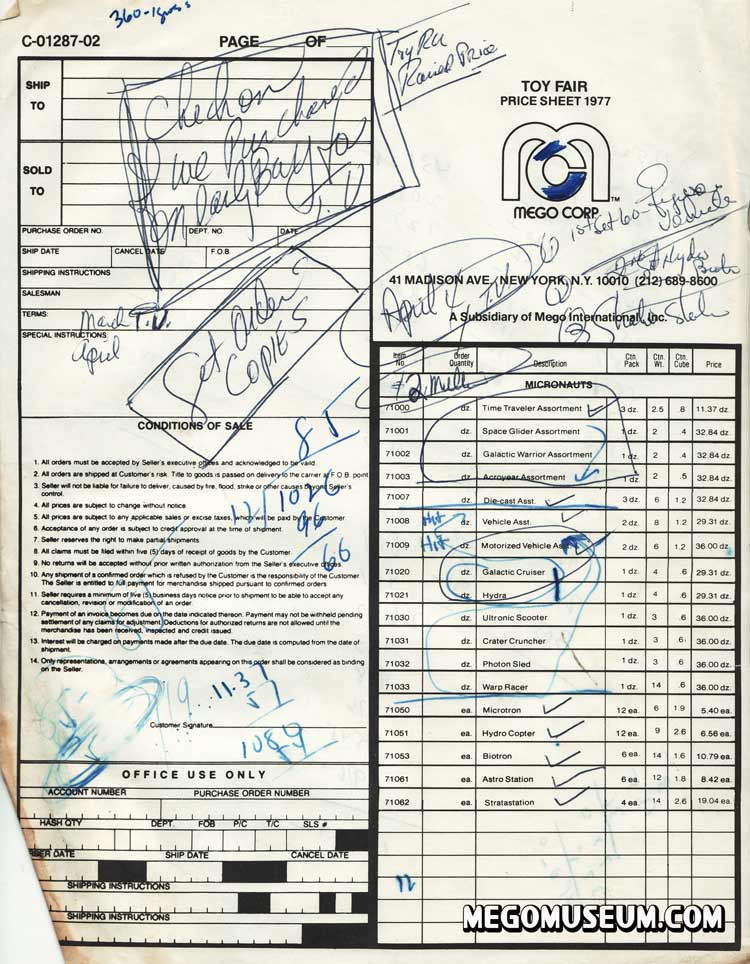 C-01287-02
PAGE OF
TOY FAIR
PRICE SHEET 1977
MEGO CORP.™
41 MADISON AVE., NEW YORK, N.Y. 10010 (212) 689-8600
A Subsidiary of Mego International, Inc.
SHIP
TO
SOLD
TO
Check on
if we Purchased
T.V.
PURCHASE ORDER NO. DEPT. NO. DATE
SHIP DATE CANCEL DATE F.O.B.
SHIPPING INSTRUCTIONS
SALESMAN
TERMS:
March T.V.
SPECIAL INSTRUCTIONS:
April
Get Order
COPIES
April 4 T.V.
CONDITIONS OF SALE
1. All orders must be accepted by Seller's executive offices and acknowledged to be valid.
2. All orders are shipped at Customer's risk. Title to goods is passed on delivery to the carrier at F.O.B. point
3. Seller will not be liable for failure to deliver, caused by fire, flood, strike or other causes beyond Seller's
control.
4. All prices are subject to change without notice.
5. All prices are subject to any applicable sales or excise taxes, which will be paid by the Customer
6. Acceptance of any order is subject to credit approval at the time of shipment.
7. Seller reserves the right to make partial shipments.
8. All claims must be filed within five (5) days of receipt of goods by the Customer.
9. No returns will be accepted without prior written authorization from the Seller's executive offices.
10. Any shipment of a confirmed order which is refused by the Customer is the responsibility of the Customer
The Seller is entitled to full payment for merchandise shipped pursuant to confirmed orders.
11. Seller requires a minimum of five (5) business days notice prior to shipment to be able to accept any
cancellation, revision or modification of an order.
12. Payment of an invoice becomes due on the date indicated thereon. Payment may not be withheld pending
settlement of any claims for adjustment. Deductions for authorized returns are not allowed until the
merchandise has been received, inspected and credit issued.
13. Interest will be charged on payments made after the due date. The due date is computed from the date of
shipment.
14. Only representations, arrangements or agreements appearing on this order shall be considered as binding
on the Seller.
85
12 1026
96
66
11.37
Customer Signature
OFFICE USE ONLY
ACCOUNT NUMBER PURCHASE ORDER NUMBER
HASH QTY DEPT. FOB P/C T/C SLS #
ORDER DATE SHIP DATE CANCEL DATE
SHIPPING INSTRUCTIONS
SHIPPING INSTRUCTIONS
Item No. Order Quantity Description Ctn. Pack Ctn. Wt. Ctn. Cube Price
MICRONAUTS
71000 dz. Time Traveler Assortment 3 dz. 2.5 .8 11.37 dz.
71001 dz. Space Glider Assortment 1 dz. 2 .4 32.84 dz.
71002 dz. Galactic Warrior Assortment 1 dz. 2 .4 32.84 dz.
71003 dz. Acroyear Assortment 1 dz. 2 .5 32.84 dz.
71007 dz. Die-cast Asst. 3 dz. 6 1.2 32.84 dz.
71008 Hit dz. Vehicle Asst. 2 dz. 8 1.2 29.31 dz.
71009 Hit dz. Motorized Vehicle Asst. 2 dz. 6 1.2 36.00 dz.
71020 dz. Galactic Cruiser 1 dz. 4 .6 29.31 dz.
71021 dz. Hydra 1 dz. 4 .6 29.31 dz.
71030 dz. Ultronic Scooter 1 dz. 3 .6 36.00 dz.
71031 dz. Crater Cruncher 1 dz. 3 .6 36.00 dz.
71032 dz. Photon Sled 1 dz. 3 .6 36.00 dz.
71033 dz. Warp Racer 1 dz. 14 .6 36.00 dz.
71050 ea. Microtron 12 ea. 6 1.9 5.40 ea.
71051 ea. Hydro Copter 12 ea. 9 2.6 6.56 ea.
71053 ea. Biotron 6 ea. 14 1.6 10.79 ea.
71061 ea. Astro Station 6 ea. 12 1.8 8.42 ea.
71062 ea. Stratastation 4 ea. 14 2.6 19.04 ea.
12
MEGOMUSEUM.COM